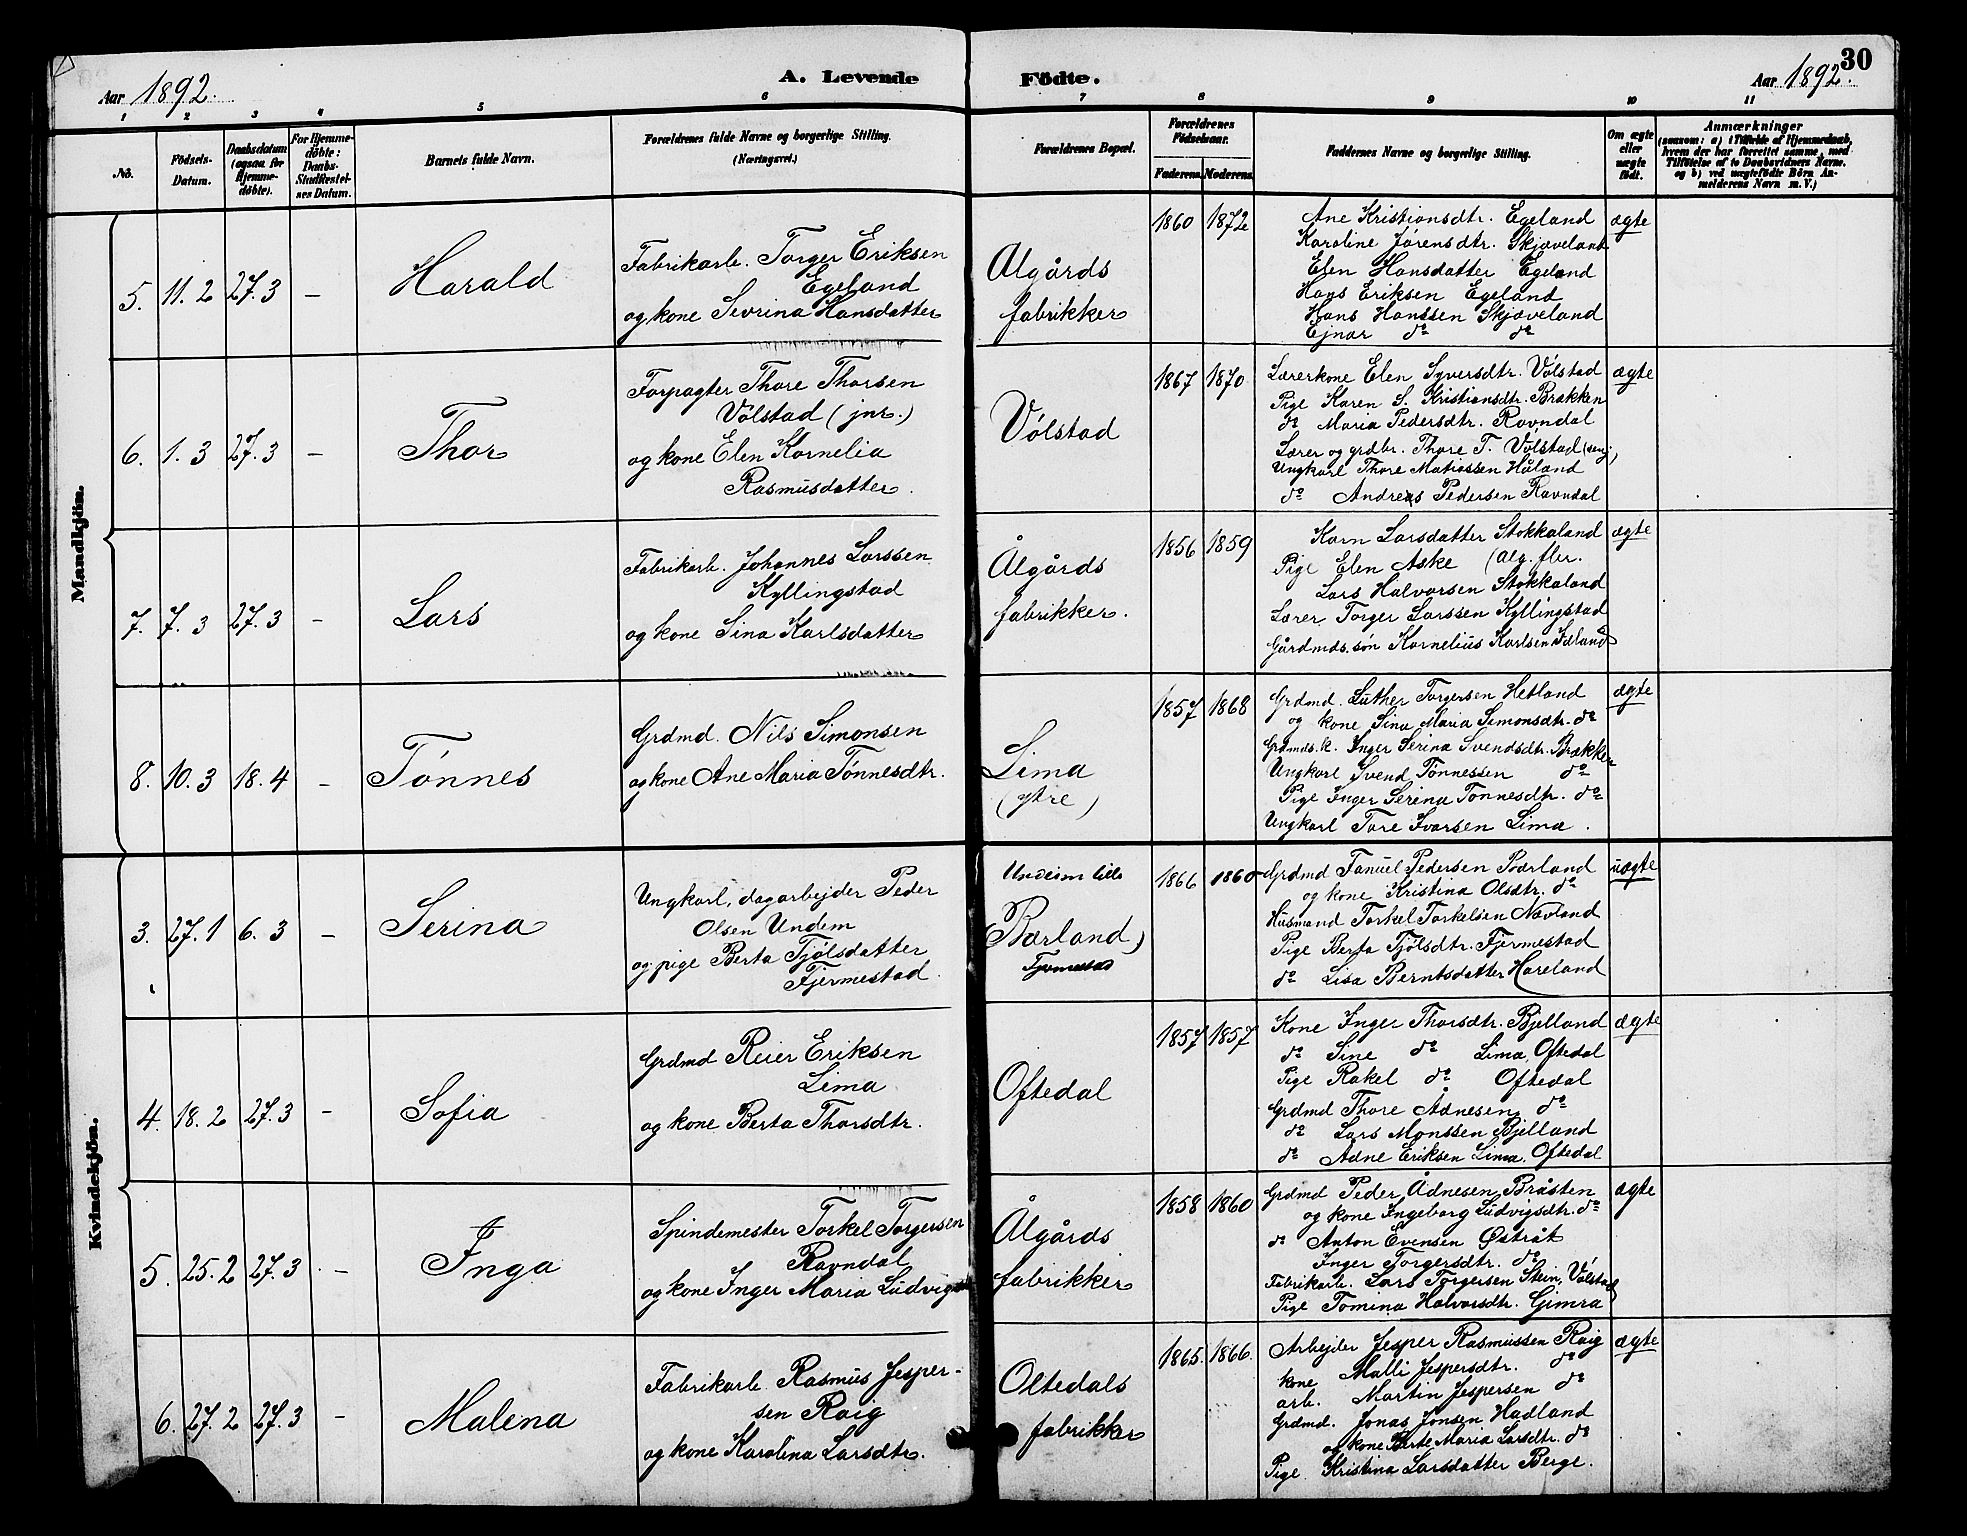 30
A. Levende Födte.
Aar 1892.
Aar 1892.
1 2 3 4 5 6 7 8 9 10 11
No.
Födsels-
Datum.
Daabsdatum
(ogsaa for
Hjemme-
döbte).
For Hjemme-
døbte:
Daabs-
Stadfæstel-
ses Datum.
Barnets fulde Navn.
Forældrenes fulde Navne og borgerlige Stilling.
(Næringsvei.)
Forældrenes Bopæl.
Forældrenes
Födselsaar.
Faderens. Moderens.
Faddernes Navne og borgerlige Stilling.
Om ægte
eller
uægte
födt.
Anmærkninger
(saasom: a) i Tilfælde af Hjemmedaab,
hvem der har forrettet samme, med
Tilföielse af to Daabsvidners Navne.
og b) ved uægtefödte Börn An-
melderens Navn m. V.)
Mandkjön.
5. 11.2 27.3 — Harald
Fabrikarb. Torger Eriksen
Egeland
og kone Sevrina Hansdatter
Algårds
fabrikker
1860 1872
Ane Kristiansdtr. Egeland
Karoline Jørensdtr. Skjæveland
Elen Hansdatter Egeland
Hans Eriksen Egeland
Hans Hanssen Skjæveland
Ejnar do do
ægte
6. 1.3 27.3 — Thor
Forpagter Thore Thorsen
Vølstad (jnr.)
og kone Elen Kornelia
Rasmusdatter.
Vølstad
1867 1870
Lærerkone Elen Syversdtr. Vølstad
Pige Karen S. Kristiansdtr. Brækken
do Maria Pedersdtr. Ravndal
Lærer og grdbr. Thore T. Vølstad (sen),
Ungkarl Thore Matiassen Håland
do Andreas Pedersen Ravndal
ægte
7. 7.3 27.3 — Lars
Fabrikarb. Johannes Larssen
Kyllingstad
og kone Sina Karlsdatter
Ålgårds
fabrikker.
1856 1859
Karn Larsdatter Stokkaland
Pige Elen Aske (Alg. fbr.
Lars Halvorsen Stokkaland
Lærer Torger Larssen Kyllingstad
Gårdmds. søn Kornelius Karlsen
ægte
8. 10.3 18.4 — Tønnes
Grdmd. Nils Simonsen
og kone Ane Maria Tønnesdtr.
Lima
(ytre)
1857 1868
Grdmd. Luther Torgersen Hetland
og kone Sina Maria Simonsdtr. do
Grdmds. k. Inger Serina Svendsdtr. Brækken
Ungkarl Svend Tønnessen do
Pige Inger Serina Tønnesdtr. do
Ungkarl Tore Ivarsen Lima.
ægte
Kvindekjön.
3. 27.1 6.3 — Serina
Ungkarl, dagarbejder Peder
Olsen Undem
og pige Berta Tjølsdatter
Fjermestad.
Undeim lille
(Bærland)
Fjermestad
1866 1860
Grdmd Tanuel Pedersen Bærland
og kone Kristina Olsdtr. do
Husmand Torkel Torkelsen Nævland
Pige Berta Tjølsdtr. Fjermestad
do Lisa Berntsdatter Hareland
uægte
4. 18.2 27.3 — Sofia
Grdmd Reier Eriksen
Lima
og kone Berta Thorsdtr.
Oftedal
1857 1857
Kone Inger Thorsdtr. Bjelland
do Sine do Lima, Oftedal
Pige Rakel do Oftedal
Grdmd Thore Ådnesen do
do Lars Monssen Bjelland
do Adne Eriksen Lima, Oftedal
ægte
5. 25.2 27.3 — Inga
Spindemester Torkel Torgersen
Ravndal
og kone Inger Maria
Ålgårds
fabrikker
1858 1860
Grdmd Peder Ådnesen Bråsten
og kone Ingeborg Ludvigsdtr. do
do Anton Evensen Østråt
Inger Torgersdtr. do
Fabrikarb. Lars Torgersen Stein, Vølstad
Pige Tomina Halvorsdtr. Gimra
ægte
6. 27.2 27.3 — Malena
Fabrikarb. Rasmus Jesper-
sen Raig
og kone Karolina Larsdtr.
Oltedals
fabrikker
1865. 1866.
Arbejder Jesper Rasmussen Raig
kone Malli Jespersdtr. do
arb. Martin Jespersen do
Grdmd. Jonas Jonsen Hadland
og kone Berte Maria Larsdtr. do
Pige Kristina Larsdatter Berge.
ægte